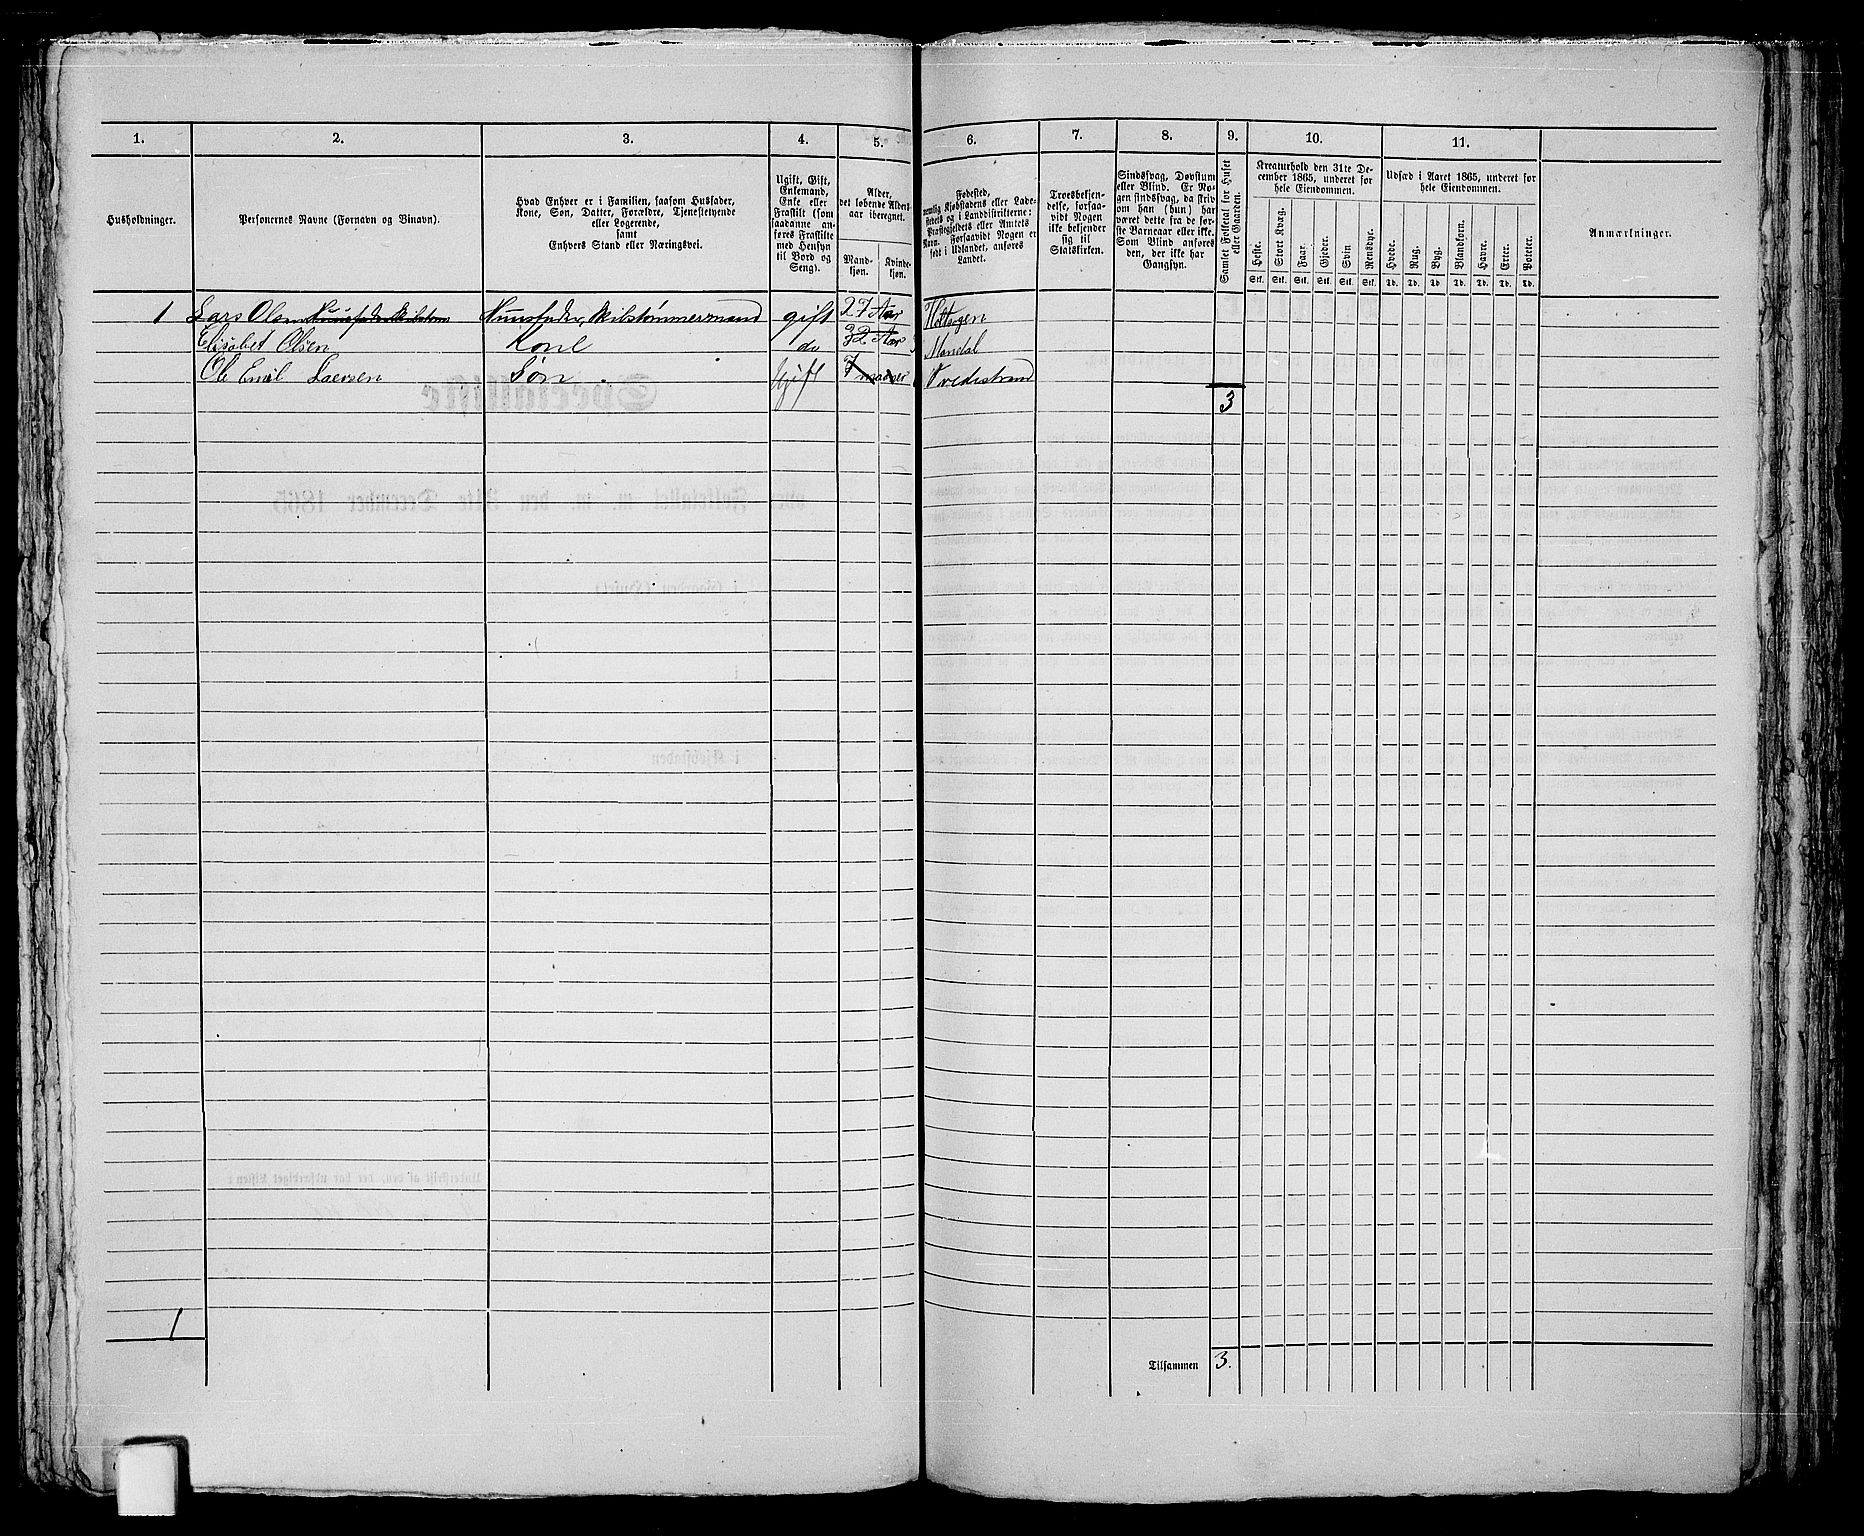 1. 2. 3. 4. 5. 6. 7. 8. 9. 10. 11.
Husholdninger.
Personernes Navne (Fornavn og Binavn).
Hvad Enhver er i Familien, saasom Husfader,
Kone, Søn, Datter, Forældre, Tjenestetyende
eller Logerende,
samt
Enhvers Stand eller Næringsvei.
Ugift, Gift,
Enkemand,
Enke eller
Fraskilt (som
saadanne an-
føres Fraskilte
med Hensyn
til Bord og
Seng).
Alder,
det løbende Alders-
aar iberegnet.
Mand-
kjøn.
Kvinde-
kjøn.
Fødested,
nemlig Kjøbstadens eller Lade-
stedets og i Landdistrikterne:
Præstegjeldets eller Amtets
Navn. Forsaavidt Nogen er
født i Udlandet, anføres
Landet.
Troesbekjen-
delse, forsaa-
vidt Nogen
ikke bekjender
sig til
Statskirken.
Sindssvag, Døvstum
eller Blind. Er No-
gen sindssvag, da skriv
om han (hun) har
været dette fra de før-
ste Barneaar eller ikke.
Som Blind anføres
den, der ikke har
Gangsyn.
Samlet Folketal for Huset
eller Gaarden.
Kreaturhold den 31te De-
cember 1865, underet for
hele Eiendommen.
Heste. Stort Kvæg. Faar. Gjeder. Svin Rensdyr.
Stk. Stk. Stk. Stk. Stk. Stk.
Udsæd i Aaret 1865, underet for
hele Eiendommen.
Hvede. Rug. Byg. Blandkorn. Havre. Erter. Poteter.
Td. Td. Td Td. Td. Td. Td.
Anmærkninger.
1 Lars Olsen Huusfader, skibstømmermand gift 27 Aar
Elisabet Olsen Kone do 32 Aar Mandal
Ole Emil Laersen Søn Ugift 7 maaner Tvedestrand
3
1
Tilsammen 3.